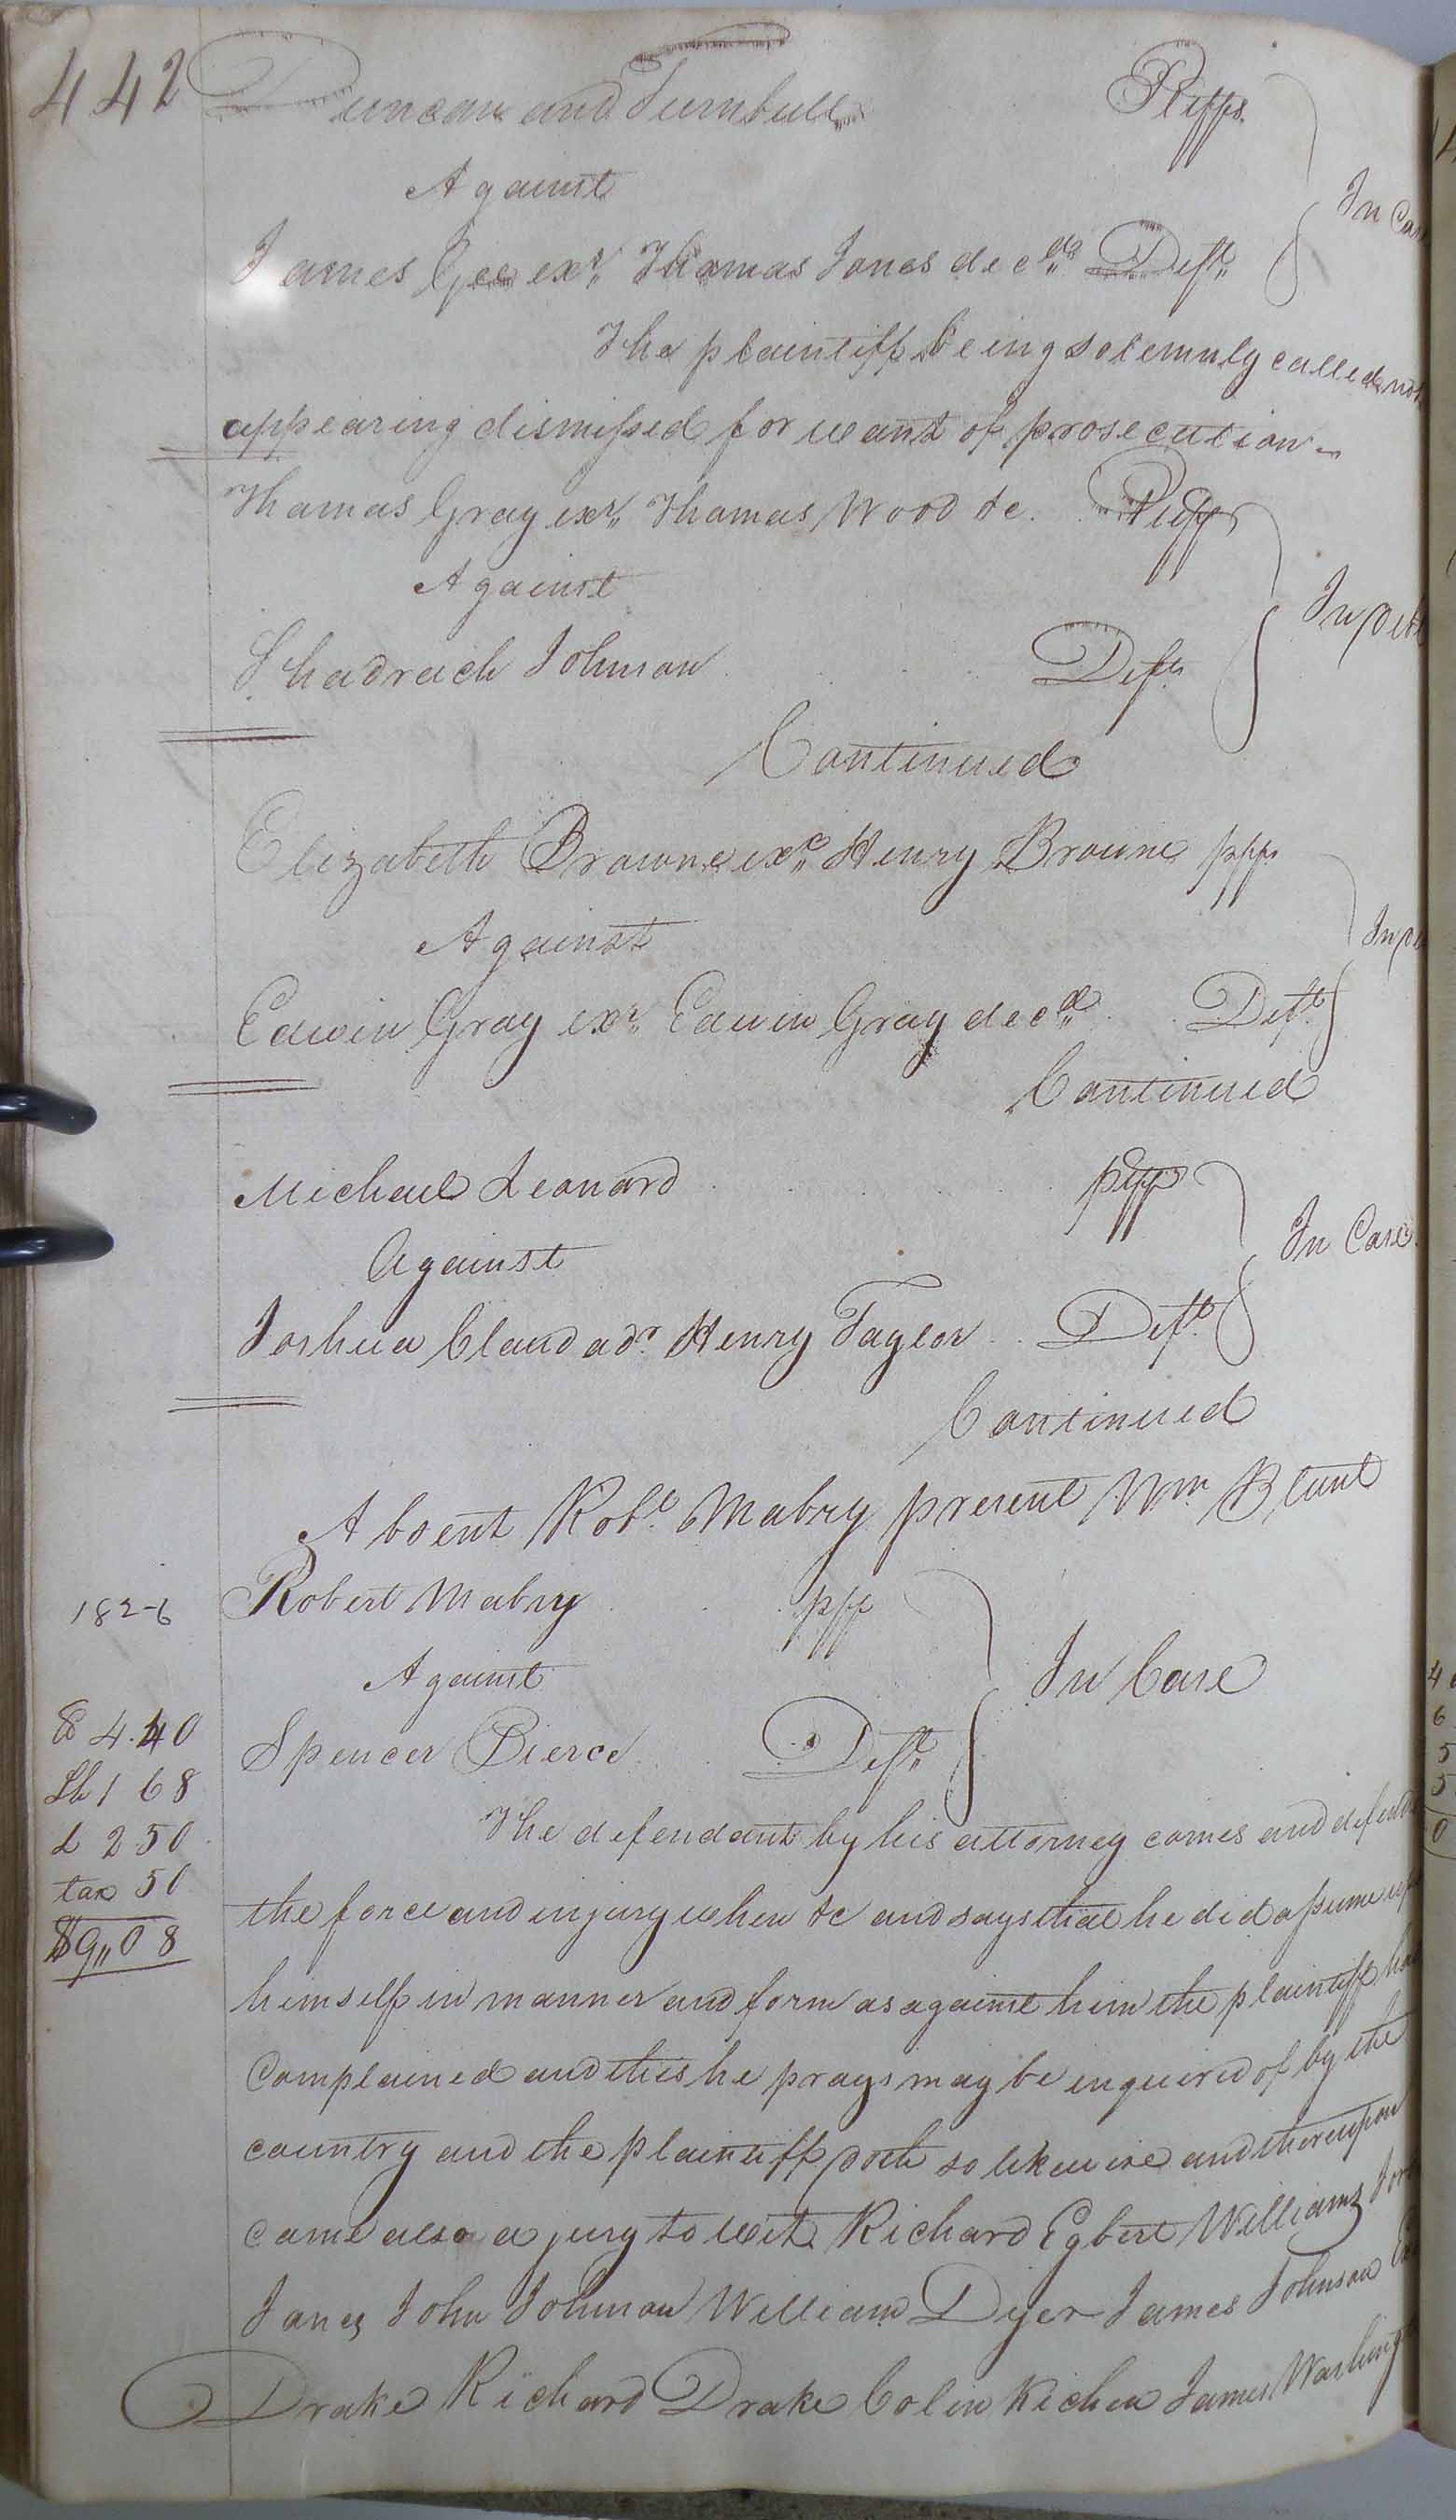 442
Duncan and Turnbull Pltffs.
Against
In Ca
James Gee exr. Thomas Jones decd. Deft.
The plaintiff being solemnly called not
appearing dismissed for want of prosecution
Thomas Gray exr. Thomas Wood &c. Pltff
Against
In
Shadrach Johnson Deft
Continued
Elizabeth Browne exx. Henry Browne plff
Against
In
Edwin Gray exr. Edwin Gray decd. Deft.
Continued
Michael Leonard plff
Against
In Case
Joshua Claud adr. Henry Taylor Deft.
Continued
Absent Robt. Mabry present Wm Blunt
182-6
Robert Mabry plff
Against
In Case
Spencer Pierce Deft.
C 4.40
Sh 1 68
L 2 50
tax 50
$9,,08
The defendant by his attorney comes and defends
the force and injury when &c and says that he did assume
himself in manner and form as against him the plaintiff
Complained and this he prays may be inquired of by the
country and the plaintiff doth so likewise and thereupon
came also a jury to wit Richard Egbert Williams
Jones John Johnson William Dyer James Johnson
Drake Richard Drake Colin Kichen James